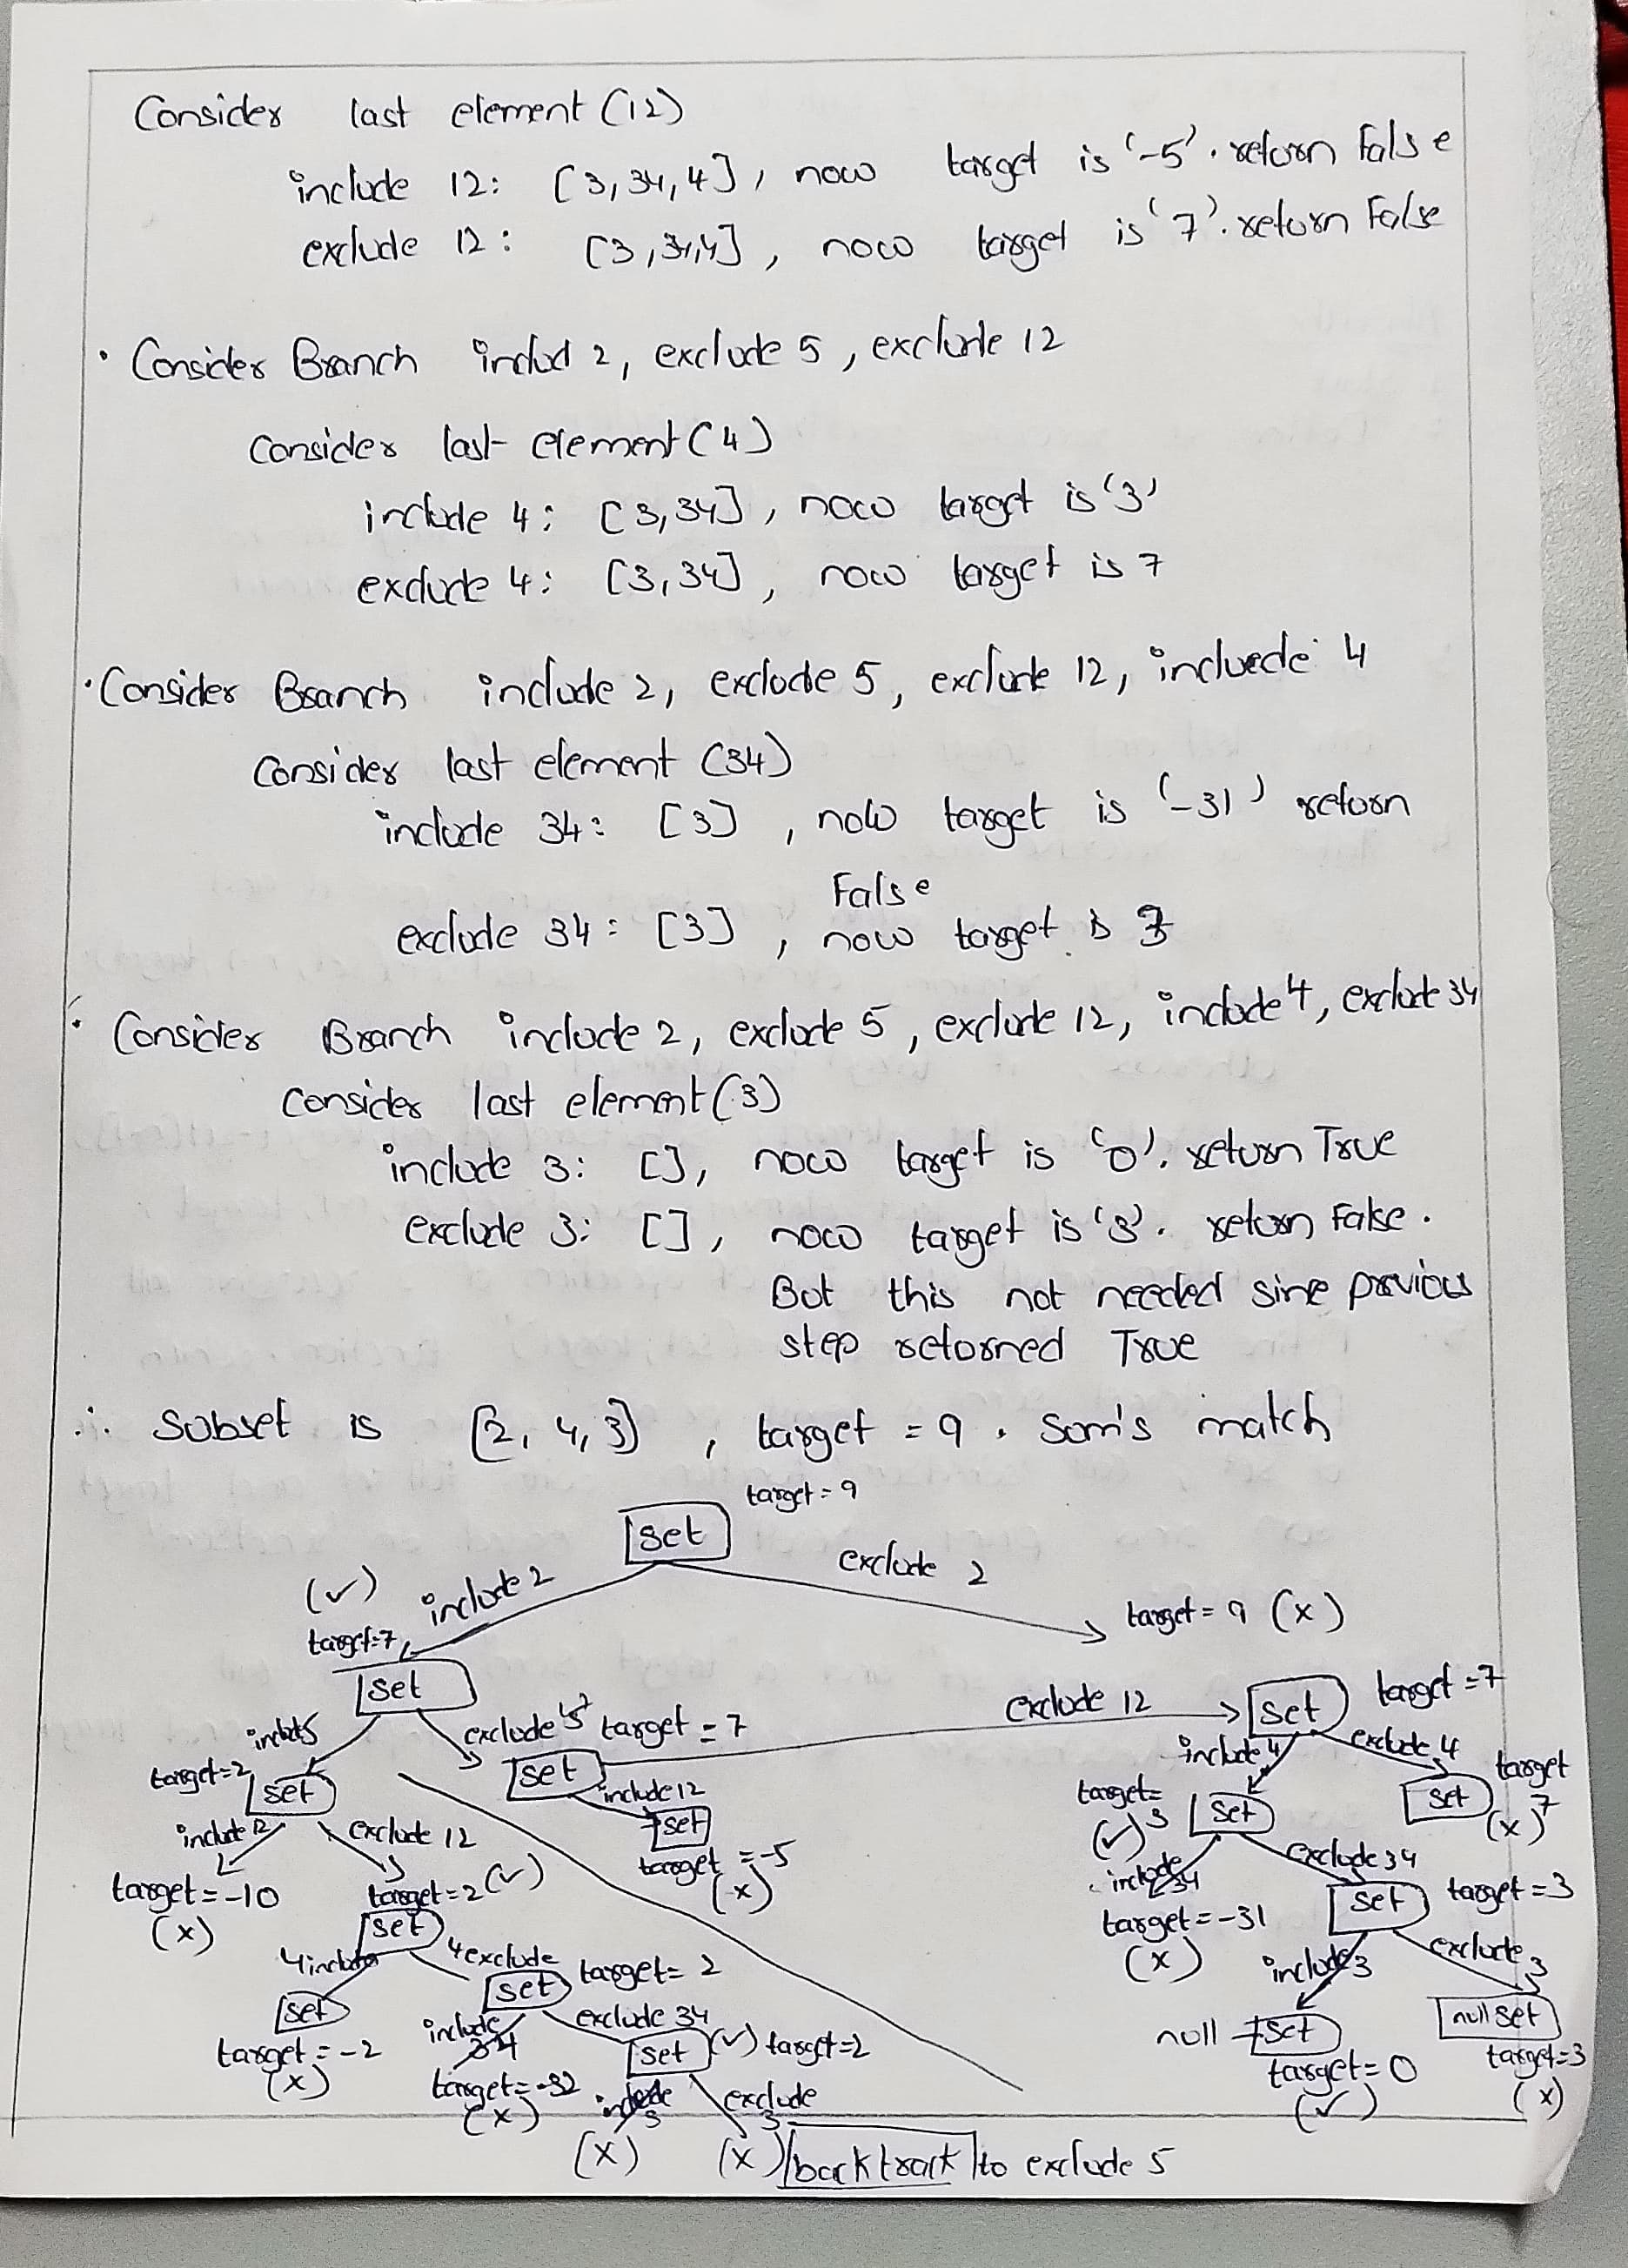 Consider last element (12)
include 12: [3,34,4], now target is '-5'. return False
exclude 12: [3,34,4], now target is '7'. return False
• Consider Branch includ 2, exclude 5, exclude 12
Consider last element (4)
include 4: [3,34], now target is '3'
exclude 4: [3,34], now target is 7
• Consider Branch include 2, exclude 5, exclude 12, incluede 4
Consider last element (34)
include 34: [3], now target is '-31' return
False
exclude 34: [3], now target is 3
• Consider Branch include 2, exclude 5, exclude 12, include 4, exclude 34
Consider last element (3)
include 3: [], now target is '0'. return True
exclude 3: [], now target is '3'. return False.
But this not needed sine previous
step returned True
∴ Subset is [2, 4, 3], target = 9. Som's match
target = 9
set
(✓) include 2 exclude 2
target=7 target = 9 (x)
set
include 5 exclude 5 target = 7 exclude 12 set target = 7
target=2 set set include 12 include 4 exclude 4
include 12 exclude 12 set target = -5 (x)
target= 3 (✓) set set target 7 (x)
target = -10 (x) target = 2 (✓)
include 34 exclude 34
set target = -31 (x) set target = 3
4 include 4 exclude target = 2 include 3 exclude 3
set set
target = -2 (x) include 34 exclude 34
null set target = 0 (✓) null set target=3 (x)
target = -32 (x) set (✓) target=2
include 3 exclude 3
(x) (x) backtrack to exclude 5